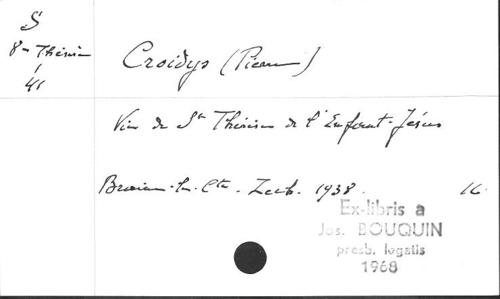 S
8- Thérèse
1
41
Croidys (Pierre)
Vie de Ste Thérèse de l'Enfant-Jésus
Braine-le-Cte. Zech. 1938. 16.
Ex-libris a
Jos. BOUQUIN
presb. legatis
1968